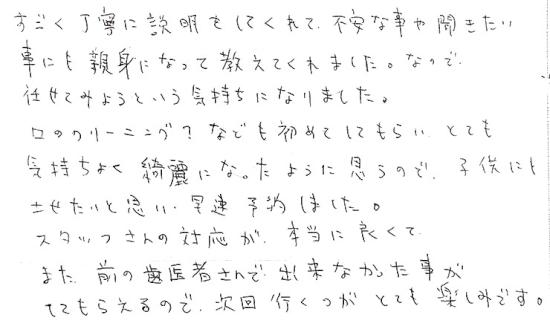 すごく丁寧に説明をしてくれて、不安な事や聞きたい
事にも親身になって教えてくれました。なので、
任せてみようという気持ちになりました。
口のクリーニング？なども初めてしてもらい、とても
気持ちよく綺麗になったように思うので、子供にも
させたいと思い、早速予約しました。
スタッフさんの対応が、本当に良くて、
また、前の歯医者さんで、出来なかった事が
してもらえるので、次回行くのが とても楽しみです。